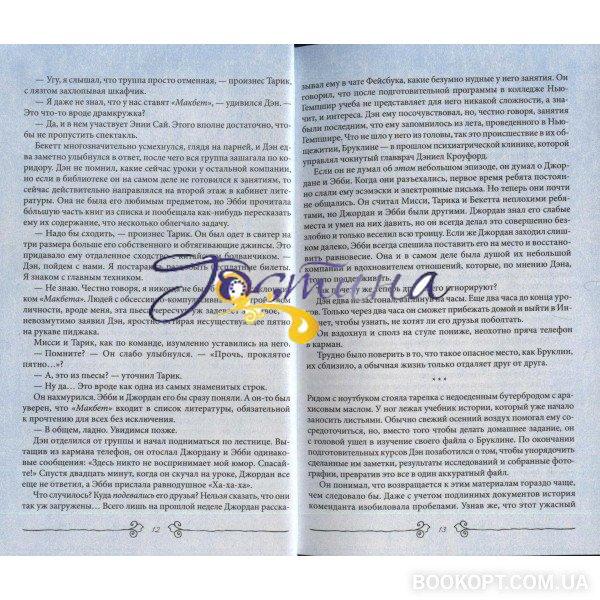 — Угу, я слышал, что труппа просто отменная, — произнес Тарик,
с лязгом захлопывая шкафчик.
— Я даже не знал, что у нас ставят «Макбет», — удивился Дэн. —
Это что-то вроде драмкружка?
— Да, и в нем участвует Эпии Сай. Этого вполне достаточно, что-
бы не пропустить спектакль.
Бекетт многозначительно усмехнулся, глядя на парней, и Дэн ед-
ва заметно улыбнулся в ответ, после чего вся группа зашагала по ко-
ридору. Дэн не помнил, какие сейчас уроки у остальной компании,
но если в библиотеке он на самом деле не готовился к занятиям, то
сейчас действительно направлялся на второй этаж в кабинет литера-
туры. Она не была его любимым предметом, но Эбби прочитала
большую часть книг из списка и пообещала как-нибудь пересказать
ему их содержание, что несколько облегчало задачу.
— Надо бы сходить, — произнес Тарик. Он был одет в свитер на
три размера больше его собственного и обтягивающие джинсы. Это
придавало ему отдаленное сходство с китайским болванчиком. —
Дэн, пойдем с нами. Я постараюсь
Я знаком с главным техником.
— Не знаю. Честно говоря, я никогда не
ком «Макбета». Людей с обсессивно-компу
личностью, вроде меня, эта пьеса
невозмутимо заявил Дэн, яростно стирая несуществующее пятно
на рукаве пиджака.
Мисси и Тарик, как по команде, изумленно уставились на него.
— Помните? — Он слабо улыбнулся. — «Прочь, проклятое
пятно…»?
— А, это из пьесы? — уточнил Тарик.
— Ну да… Это вроде как одна из самых знаменитых строк.
Он нахмурился. Эбби и Джордан его бы сразу поняли. А он-то был
уверен, что «Макбет» входит в список литературы, обязательной
к прочтению для всех без исключения.
— В общем, ладно. Увидимся позже.
Дэн отделился от группы и начал подниматься по лестнице. Вы-
тащив из кармана телефон, он отослал Джордану и Эбби одинако-
вые сообщения: «Здесь никто не воспринимает мой юмор. Спасай-
те!» Спустя двадцать минут, когда он сидел на уроке, Джордан все
еще не ответил, а Эбби прислала равнодушное «Ха-ха-ха».
Что случилось? Куда подевались его друзья? Нельзя сказать, что они
так уж загружены… Всего лишь на прошлой неделе Джордан расска-
12
зывал ему в чате Фейсбука, какие безумно нудные у него занятия. Он
говорил, что после подготовительной программы в колледже Нью-
Гемпшир учеба не представляет для него никакой сложности, а зна-
чит, и интереса. Дэн ему посочувствовал, но, честно говоря, занятия
были последним, что ему запомнилось из лета, проведенного в Нью-
Гемпшире. Что не шло у него из головы, так это происшествие в их об-
щежитии, Бруклине — в прошлом психиатрической клинике, которой
управлял чокнутый главврач Дэниел Кроуфорд.
Если он не думал об этом небольшом эпизоде, он думал о Джор-
дане и Эбби. Когда они разъехались, первое время ребята постоян-
но слали ему эсэмэски и электронные письма. Но теперь они почти
не общались. Он считал Мисси, Тарика и Бекетта неплохими ребя-
тами, но Джордан и Эбби были другими. Джордан знал его слабые
места и умел на них давить, но он всегда делал это совершенно без-
злобно, и это лишь веселило всю троицу. Если же Джордан заходил слиш-
ком далеко, Эбби всегда спешила поставить его на место и восстано-
равновесие. Она и в самом деле была душой их небольшой
компании и вдохновителем отношений, которые, по мнению Дэна,
игнорируют?
Дэн едва глянул на часы. Еще два часа до конца уро-
ков. Только через два часа он сможет прибежать домой и выйти в Ин-
тернет, чтобы узнать, не хотят ли его друзья поболтать.
Дэн вздохнул и сполз на стуле пониже, неохотно пряча телефон
в карман.
Трудно было поверить в то, что такое опасное место, как Бруклин,
их сблизило, а обычная жизнь только отдаляет друг от друга.
* * *
Рядом с ноутбуком стояла тарелка с недоеденным бутербродом с ара-
хисовым маслом. У ног лежал учебник истории, который уже начало
заносить листьями. Обычно свежий осенний воздух помогал ему со-
средоточиться, но, вместо того чтобы делать домашнее задание, он
с головой ушел в изучение своего файла о Бруклине. По окончании
подготовительных курсов Дэн позаботился о том, чтобы упорядочить
сделанные им заметки, результаты исследований и собранные фото-
графии, превратив это все в один аккуратный файл.
Он понимал, что возвращается к этим материалам гораздо чаще,
чем следовало бы. Даже с учетом подлинных документов история
коменданта изобиловала пробелами. Узнав же, что этот ужасный
13
Юстима
BOOKOPT.COM.UA